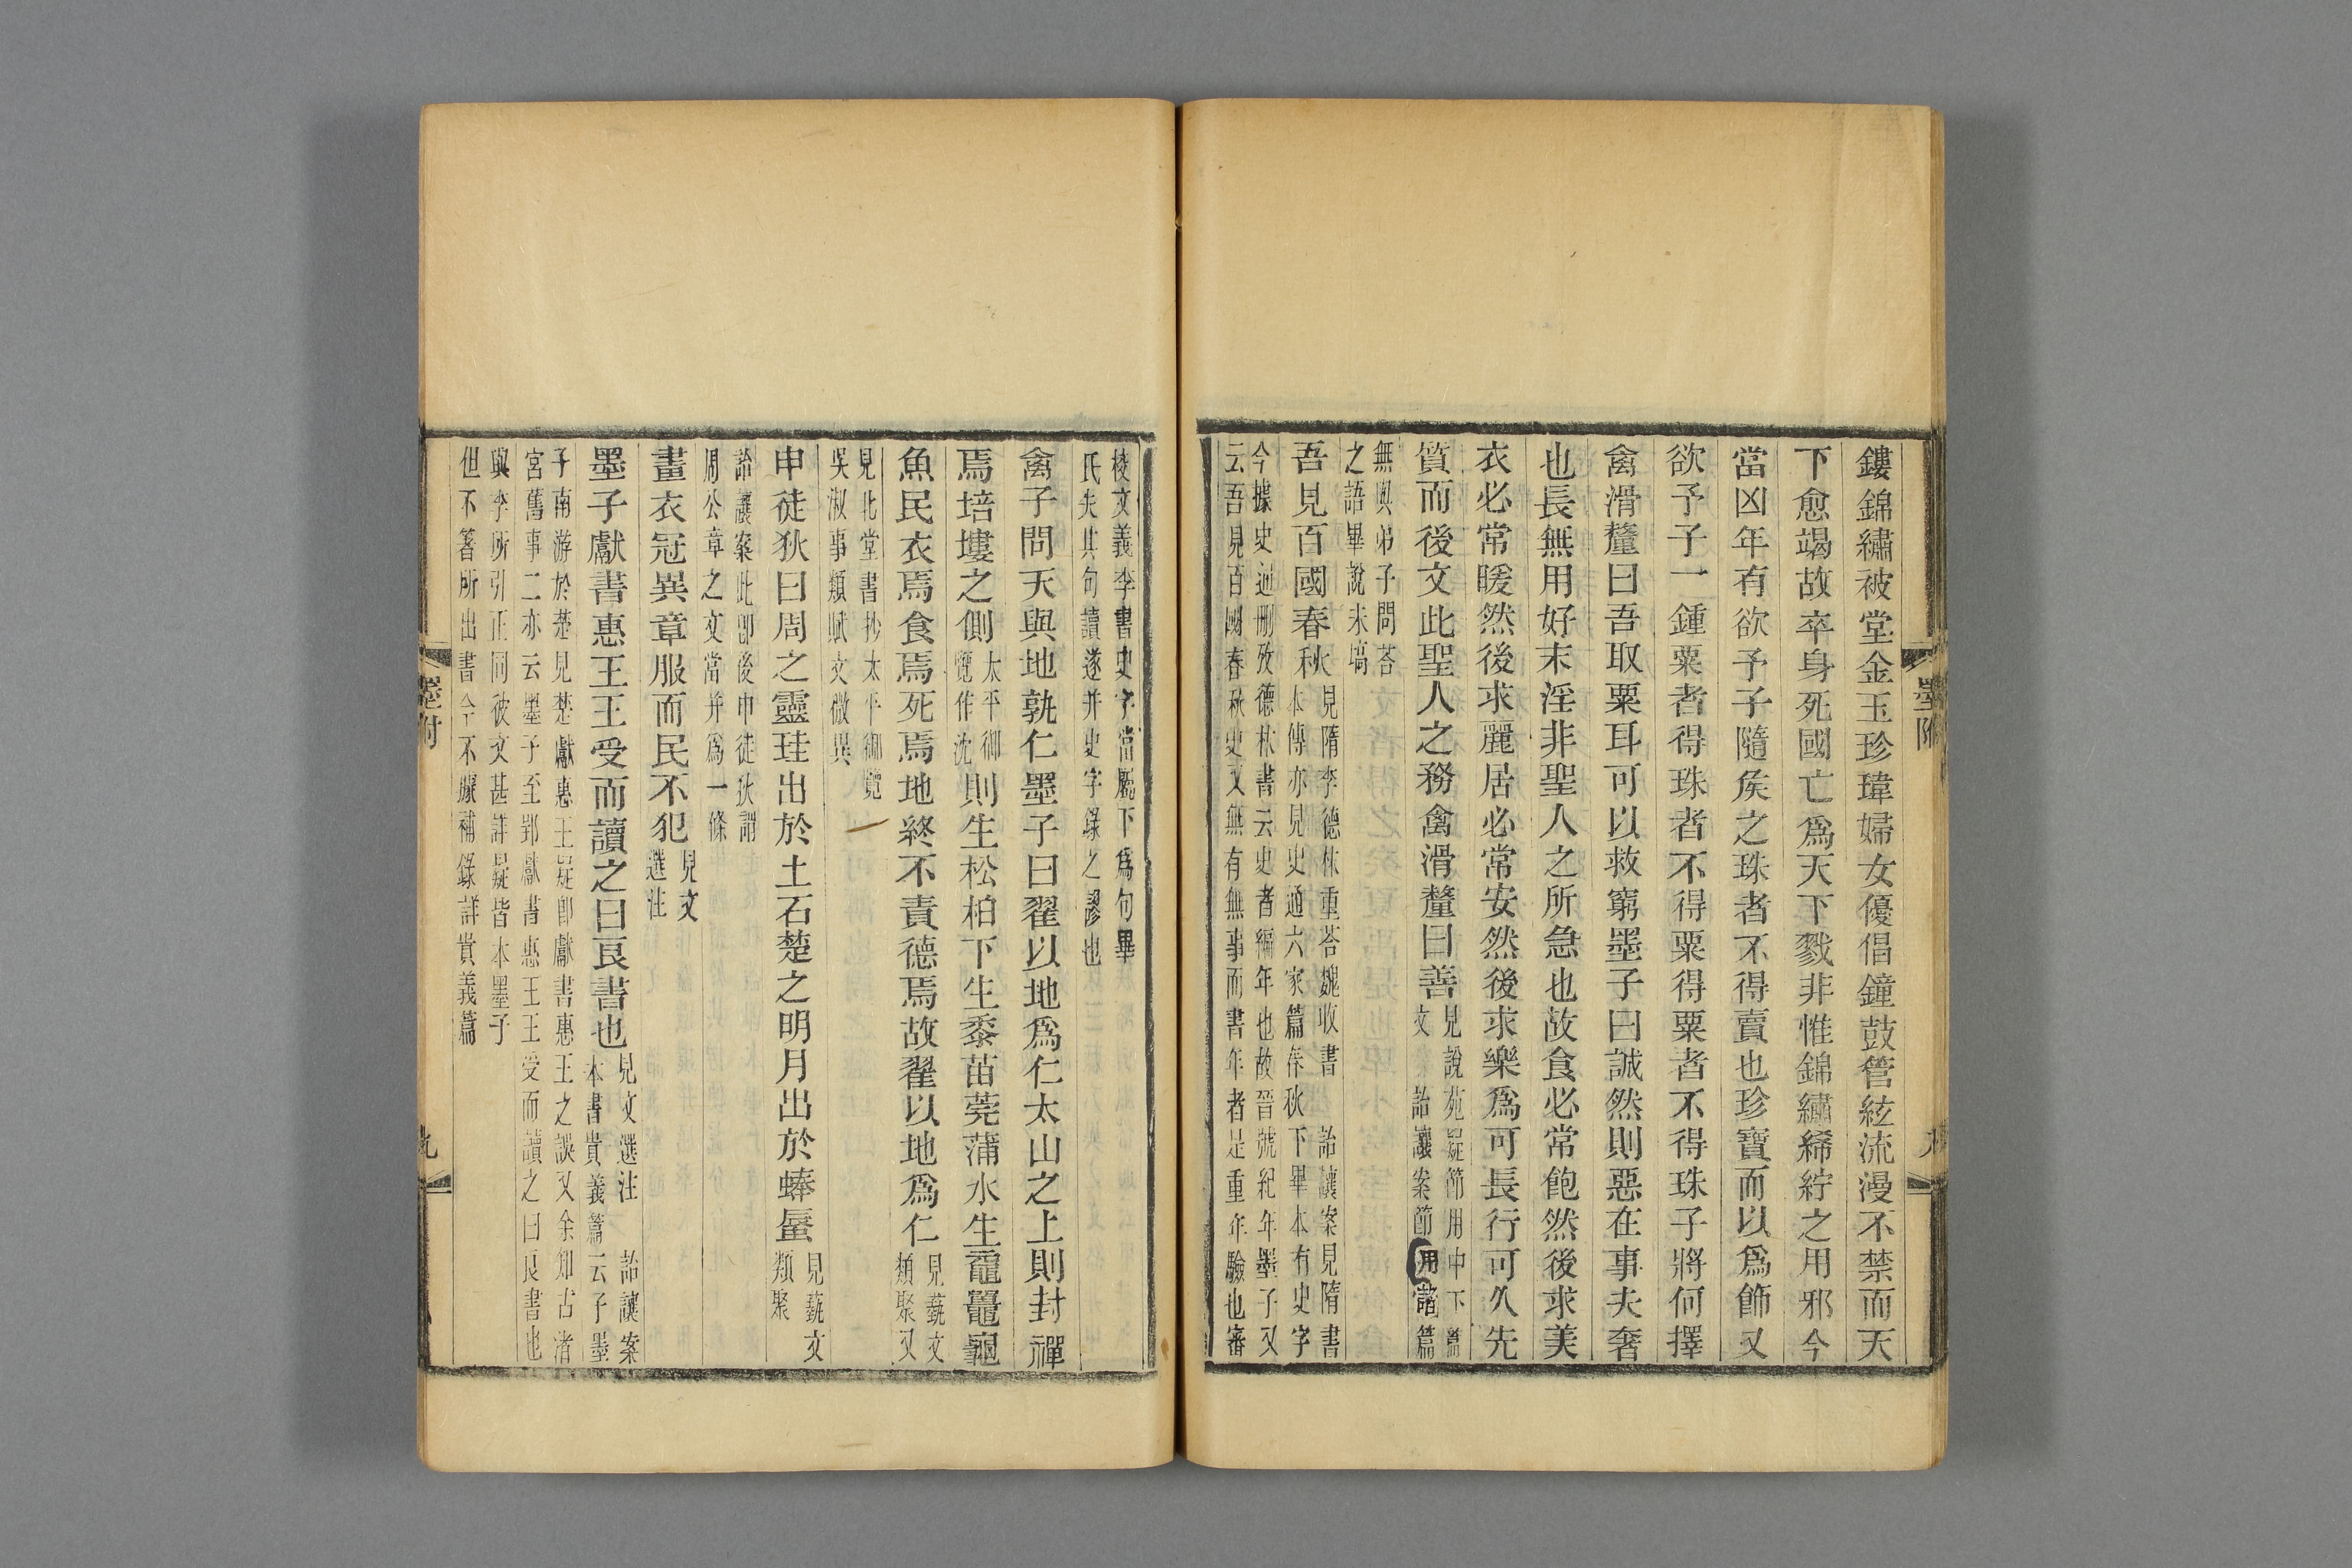 鏤錦繡被堂金玉珍瑋婦女優倡鐘鼓管絃流漫不禁而天
下愈竭故卒身死國亡爲天下戮非惟錦繡絺紵之用邪今
當凶年有欲予子隨矦之珠者不得賣也珍寶而以爲飾又
欲予子一鍾粟者得珠者不得粟得粟者不得珠子將何擇
禽滑釐曰吾取粟耳可以救窮墨子曰誠然則惡在事夫奢
也長無用好末淫非聖人之所急也故食必常飽然後求美
衣必常暖然後求麗居必常安然後求樂爲可長行可久先
質而後文此聖人之務禽滑釐曰善
見說苑疑節用中下篇
文詒讓案節用諸篇
無與弟子問荅
之語畢說未塙
吾見百國春秋
見隋李德林重荅魏收書
本傳亦見史通六家篇春秋
詒讓案見隋書
下畢本有史字
今據史通刪攷德林書云史者編年也故晉號紀年墨子又
云吾見百國春秋史又無有無事而書年者是重年驗也審
墨附
九
校文義李書史字當屬下爲句畢
氏失其句讀遂并史字錄之謬也
禽子問天與地孰仁墨子曰翟以地爲仁太山之上則封禪
焉培塿之側
太平御
覽作沈
則生松柏下生黍苗莞蒲水生黿鼉龜
魚民衣焉食焉死焉地終不責德焉故翟以地爲仁
見藝文
類聚又
見北堂書抄太平御覽
吳淑事類賦文微異
申徒狄曰周之靈珪出於土石楚之明月出於蜯蜃
見藝文
類聚
詒讓案此卽後申徒狄謂
周公章之文當并爲一條
畫衣冠異章服而民不犯
見文
選注
墨子獻書惠王王受而讀之曰良書也
見文選注
本書貴義篇
詒讓案
云子墨
子南游於楚見楚獻惠王疑卽獻書惠王之誤又余知古渚
宮舊事二亦云墨子至郢獻書惠王王受而讀之曰良書也
與李所引正同彼文甚詳疑皆本墨子
但不箸所出書今不䝘補錄詳貴義篇
墨附
九